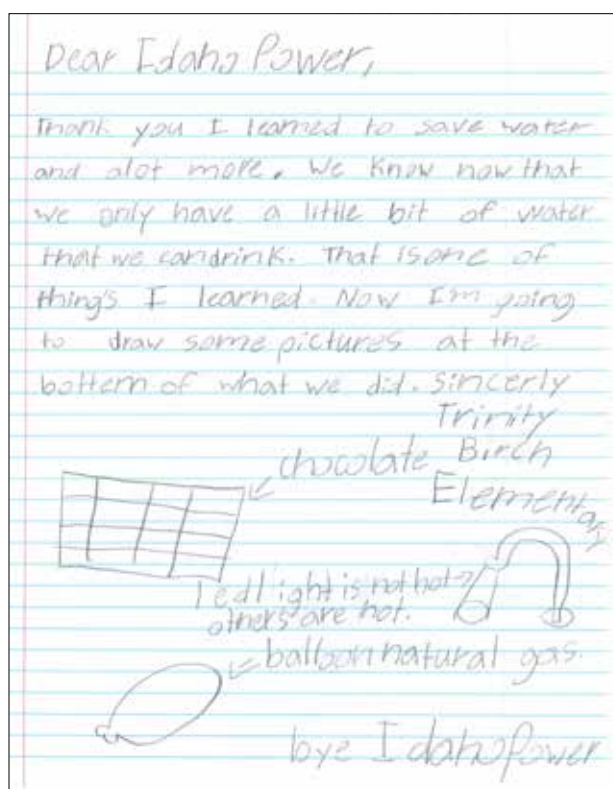 Dear Idaho Power,
Thank you I learned to save water
and alot more. We know now that
we only have a little bit of water
that we candrink. That isone of
thing's I learned. Now I'm going
to draw some pictures at the
bottem of what we did. sincerly
Trinity
Birch
Elementary
chocolate
led light is not hot
others are hot.
balloon natural gas.
bye Idaho Power